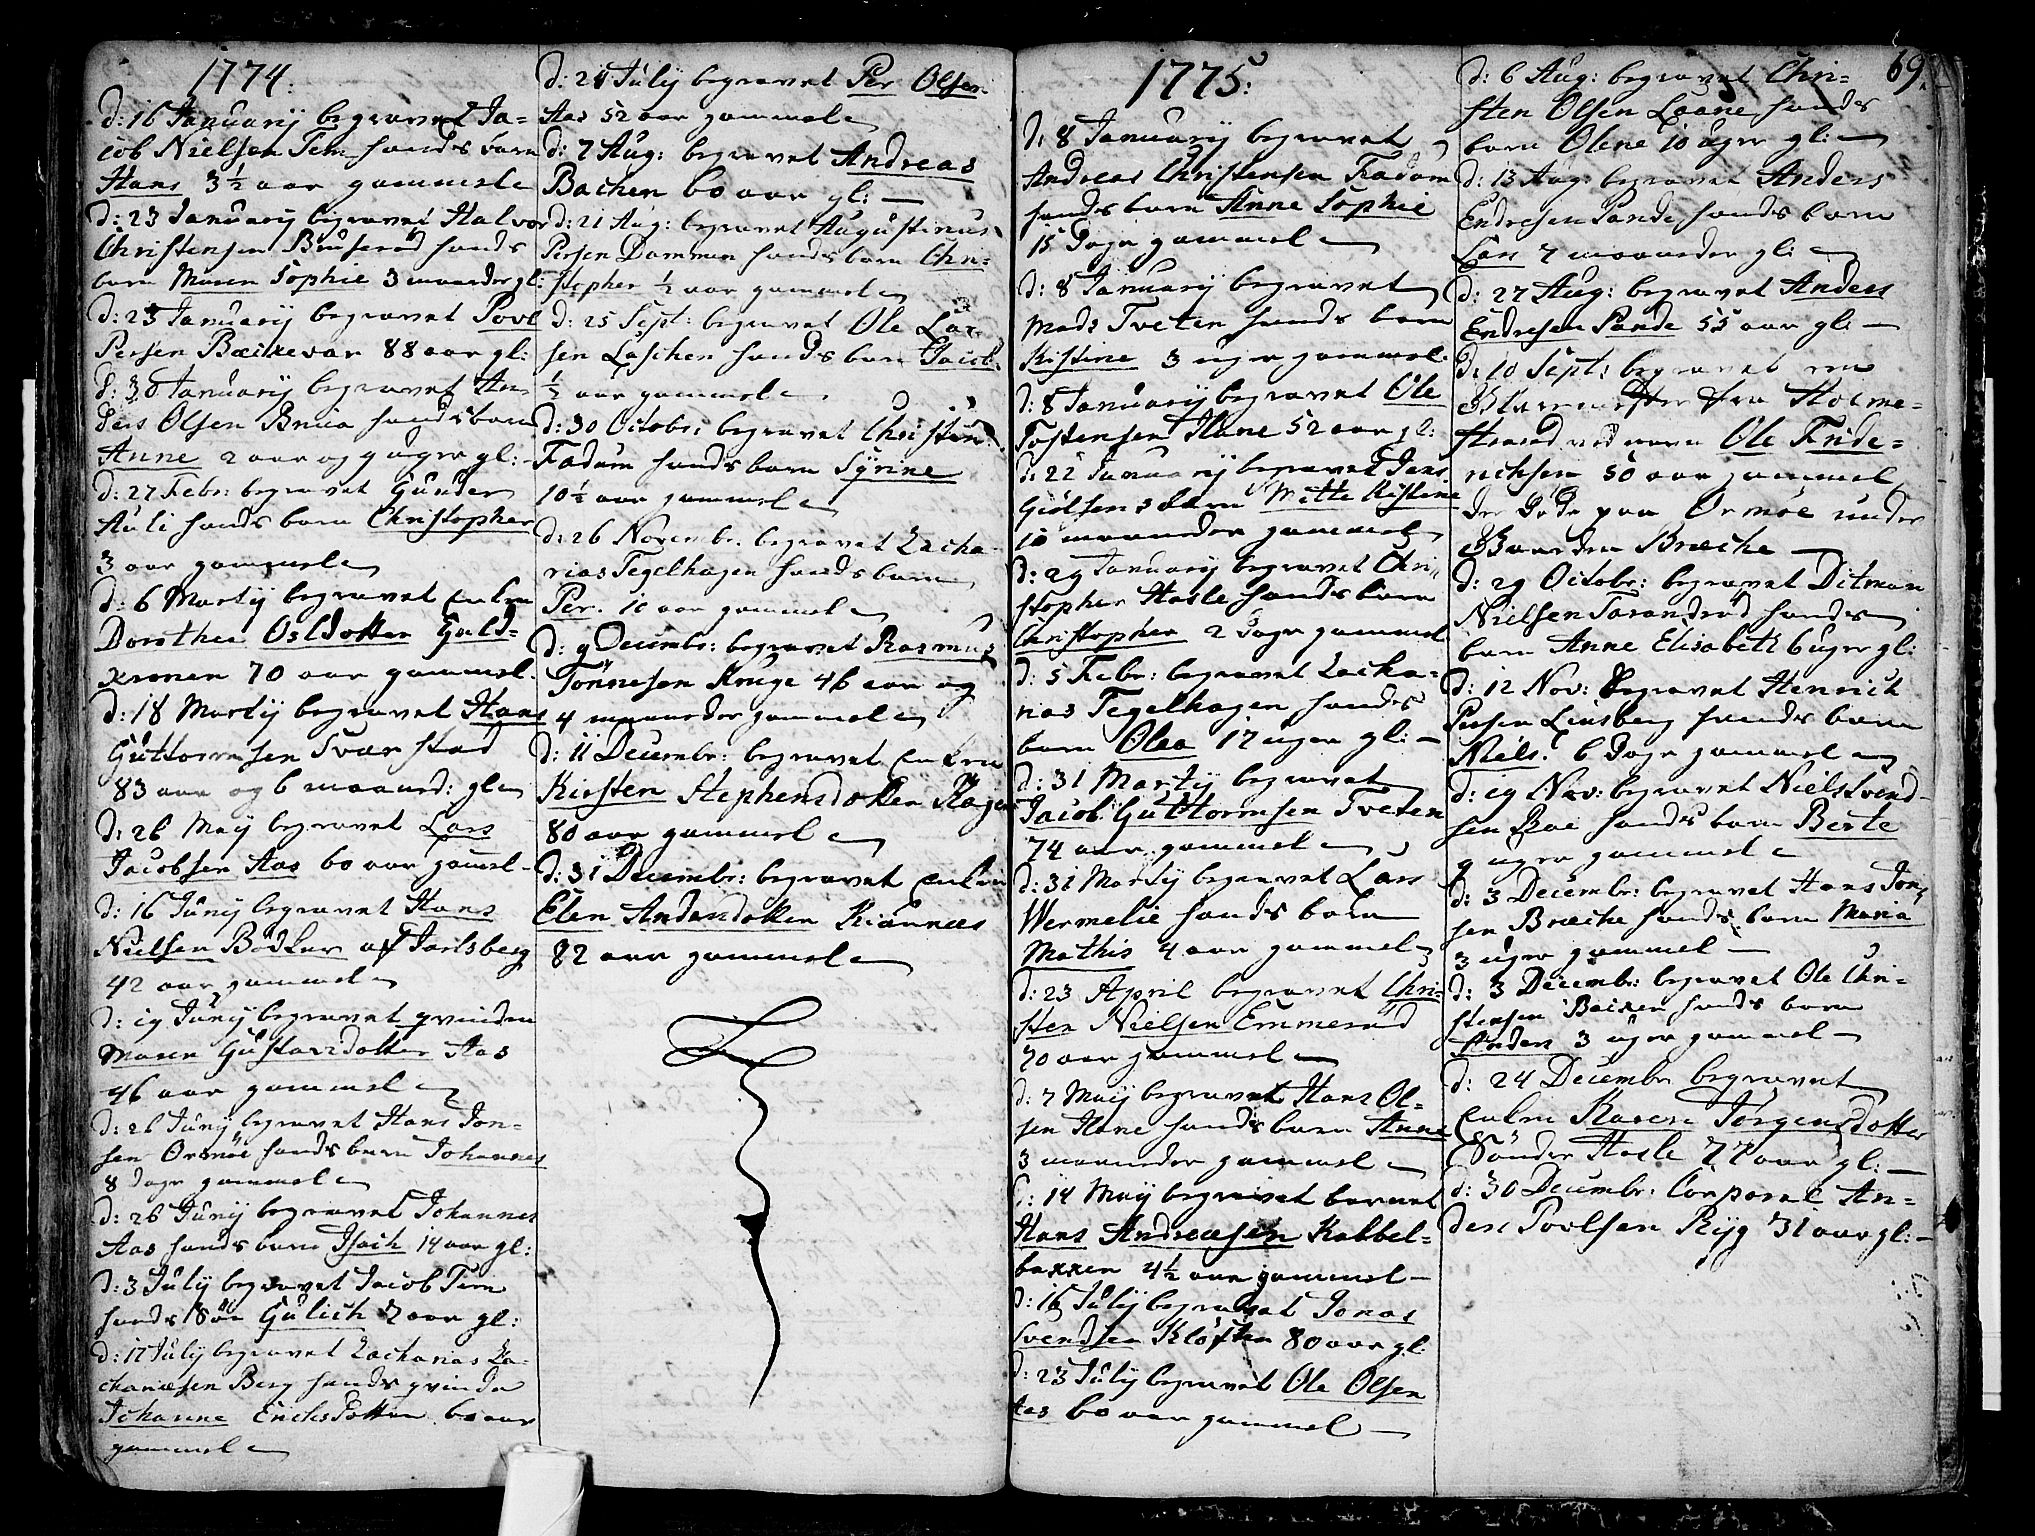 1774.
d: 16 Januarij begravet Ja=
cob Nielsen Tem hands barn
Hans 3½ aar gammel
d: 23 Januarij begravet Halvor
Christensen Bruserød hands
barn Maren Sophie 3 maaneder gl:
d: 23 Januarij begravet Povl
Persen Bæckevar 88 aar gl:
d: 30 Januarij begravet An=
ders Olsen Brua hands barn
Anne 2 aar og 9 uger gl:
d: 27 Febr: begravet Gunder
Auli hands barn Christopher
3 aar gammel
d: 6 Martij begravet enken
Dorthe Olsdotter Guld=
kronen 70 aar gammel.
d: 18 Martij begravet Hans
Guttormsen Svarstad
83 aar og 6 maaned: gl
d: 26 Maij begravet Lars
Jacobsen Aas 60 aar gamel
d: 16 Junij begravet Hans
Nielsen Bødker af Jarlsberg
42 aar gammel
d: 19 Junij begravet qvinden
Maren Gustavsdotter Aas
46 aar gammel
d: 26 Junij begravet Hans Jon=
sen Ormøe hands barn Johannes
8 dage gammel
d: 26 Junij begravet Johannes
Aas hands barn Isach 14 aar gl:
d: 3 Julij begravet Jacob Tem
hands søn Gulich 7 aar gl:
d: 17 Julij begravet Zacharias Za=
chariæsen Berg hands qvinde
Johanne Erichsdotter 60 aar
gammel
d: 24 Julij begravet Per Olsen
Aas 52 aar gammel
d: 7 Aug: begravet Andreas
Bachen 60 aar gl:
d: 21 Aug: begravet Augustinus
Persen Dammen hands barn Chri=
stopher ½ aar gammel
d: 25 Sept: begravet Ole Lar=
sen Laschen hands barn Jacob
½ aar gammel
d: 30 Octobr: begravet Christen
Fadum hands barn Syrine
10½ aar gammel
d: 26 Novembr. begravet Zacha=
rias Tegelhagen hands barn
Per. 10 aar gammel
d: 9 Decembr: begravet Rasmus
Tönnesen Kruge 46 aar og
4 maaneder gammel
d: 11 Decembr: begravet enken
Kirsten Stephensdotter Hagen
80 aar gammel
d: 31 Decembr: begravet enken
Elen Andersdotter Kiønnæs
82 aar gammel
1775.
d: 8 Januarij begravet
Andreas Christensen Fadum
hands barn Anne Sophie
15 Dage gammel
d: 8 Januarij begravet
Mads Tveten hands barn
Kistine 3 uger gammel.
d: 8 Januarij begravet Ole
Tostensen Hane 52 aar gl:
d: 22 Januarij begravet Jans
Mette Kistine
10 maaneder gammel
d: 29 Januarij begravet Chri=
stopher Hasle hands barn
Christopher 2 Dage gammel
d: 5 Febr: begravet Zacha=
rias Tegelhagen hands
barn Olea 17 uger gl:
d: 31 Martij begravet
Jacob Guttormsen Tveten
74 aar gammel
d: 31 Martij begravet Lars
Wermelie hands barn
Mathis 4 aar gammel
d: 23 April begravet Chri=
sten Nielsen Emmerud
70 aar gammel
d: 7 Maij begravet Hans Ol=
sen Hane hands barn Anne
3 maaneder gammel
d: 14 Maij begravet barnet
Hans Andreasen Kobbel=
bakken 4½ aar gammel
d: 16 Julij begravet Jonas
Svendsen Kløften 80 aar gl:
d: 23 Julij begravet Ole Olsen
Aas 60 aar gammel
69.
d: 6 Aug: begravet Chri=
sten Olsen Laane hands
barn Olene 10 uger gl:
d: 13 Aug: begravet Anders
Endresen Sande hands barn
Lars 7 maaneder gl:
d: 27 Aug: begravet Anders
Endresen Sande 55 aar gl:
d: 10 Sept: begravet en
fra Holme=
strand ved navn Ole Fride=
richsen 50 aar gammel
der døde paa Ormøe under
Gaarden Bræche
d: 29 Octobr: begravet Ditman
Nielsen Tarandrød hands
barn Anne Elisabeth 6 uger gl:
d: 12 Nov: begravet Henrich
Persen Linsberg hands barn
Niels. 6 Dage gammel
d: 19 Nov: begravet Niels Svend=
sen Roe hands barn Berte
9 uger gammel
d: 3 Decembr: begravet Hans Jon=
sen Bræche hands barn Maria
3 uger gammel
d: 3 Decembr: begravet Ole Chri=
stensen Beiken hands barn
Anders 3 uger gammel
d: 24 Decembr begravet
enken Karen Jørgensdotter
Sönder Hasle 77 aar gl:
d: 30 Decembr: Corporal An=
ders Povlsen Ryg 31 aar gl: